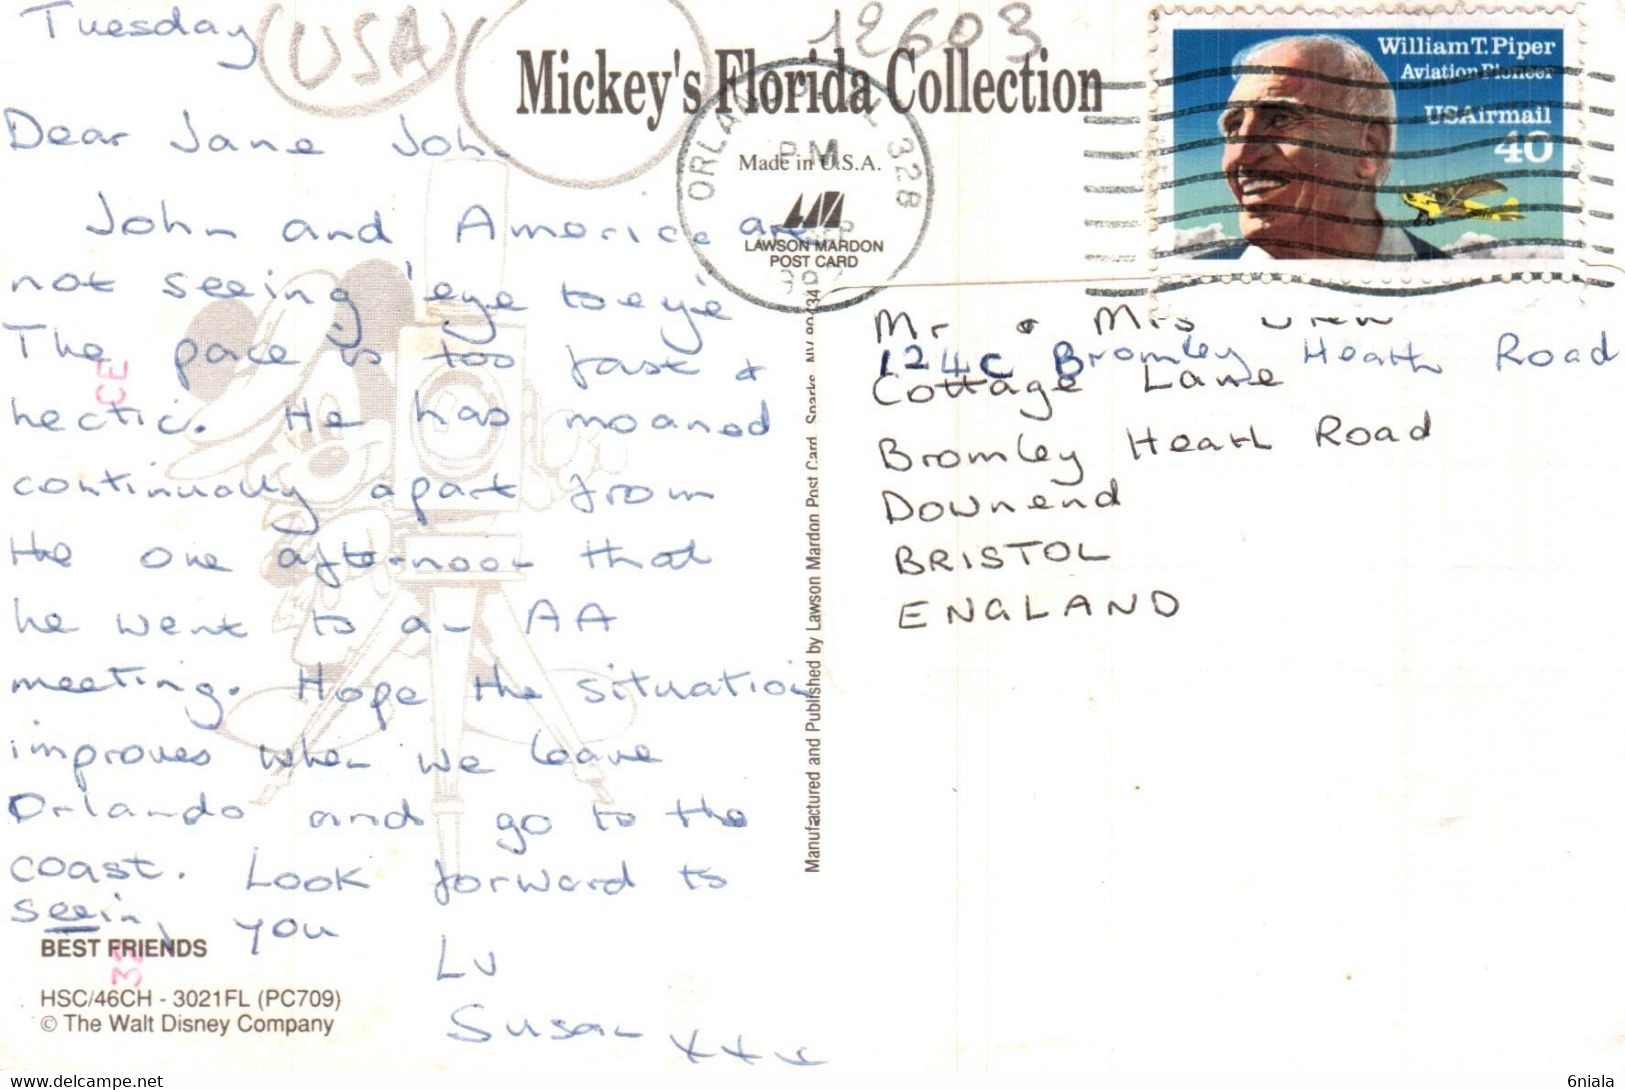 Tuesday
USA
12603
Mickey's Florida Collection
Made in U.S.A.
LAWSON MARDON
POST CARD
ORLANDO FL 328
PM
William T. Piper
Aviation Pioneer
USAirmail
40
Dear Jane John
John and America are
not seeing 'eye to eye'
The pace is too fast &
hectic. He has moaned
continually apart from
the one afternoon that
he went to an AA
meeting. Hope the situation
improves when we leave
Orlando and go to the
coast. Look forward to
seeing you
Lv
Susan xxx
Mr & Mrs
124C Bromley Heath Road
Cottage Lane
Bromley Heath Road
Downend
BRISTOL
ENGLAND
Manufactured and Published by Lawson Mardon Post Card, Sparks, NV 89434
CE
32
BEST FRIENDS
HSC/46CH - 3021FL (PC709)
© The Walt Disney Company
delcampe.net
6niala